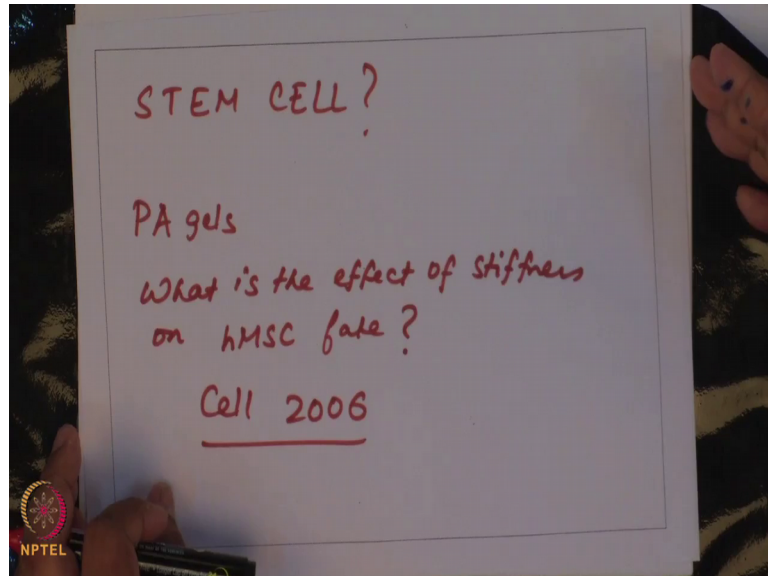 STEM CELL?
PA gels
What is the effect of stiffness
on hMSC fate?
Cell 2006
NPTEL